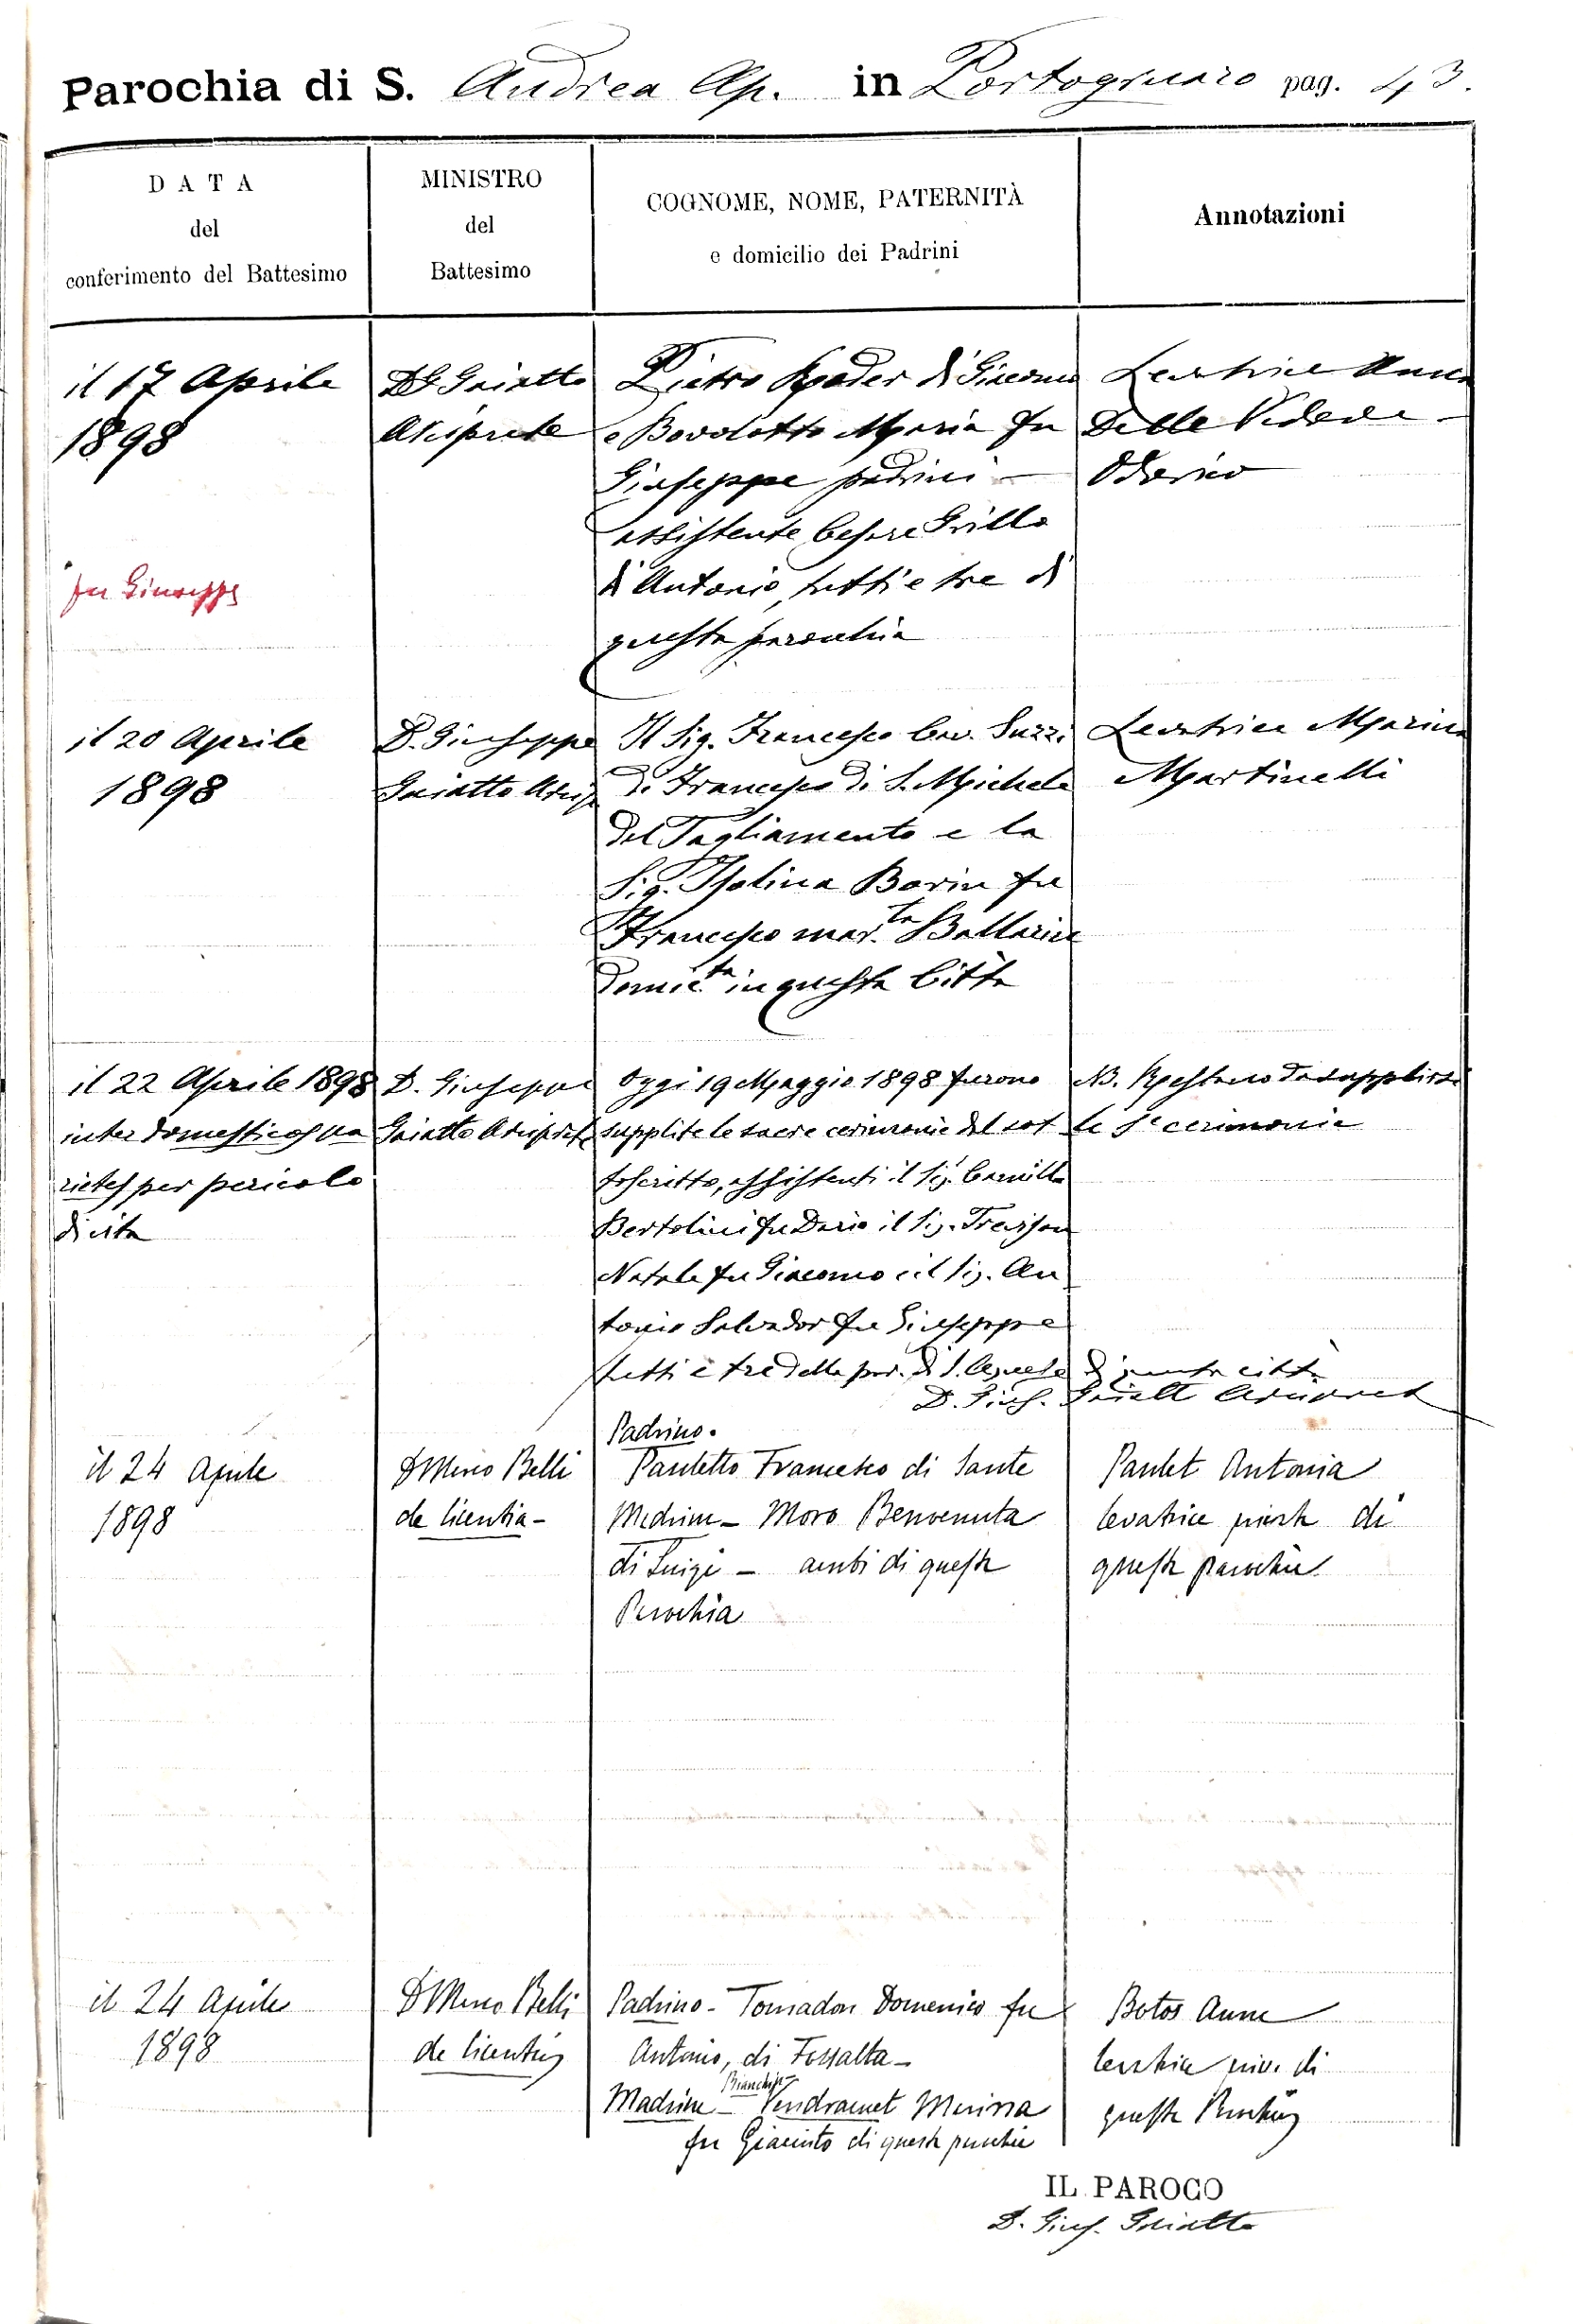 Parochia di S. Andrea Ap. in Portogruaro pag. 43.
DATA
del
conferimento del Battesimo
MINISTRO
del
Battesimo
COGNOME, NOME, PATERNITÀ
e domicilio dei Padrini
Annotazioni
il 17 Aprile
1898
fu Giuseppe
D. Gaiatto
Arciprete
Pietro di Giacomo
e Bovolotto Maria fu
Giuseppe padrini –
assistente Cesare Grillo
di Antonio, tutti e tre di
questa parochia
Levatrice Anna
Delle Vedove –
Odorico
il 20 Aprile
1898
D. Giuseppe
Gaiatto Arcip
Il Sig. Francesco Cav. Zuzzi
di Francesco di S. Michele
del Tagliamento e la
Sig. Isolina Borin fu
Francesco mar.ta Bellarin
domic.ta in questa Città
Levatrice Maria
Martinelli
il 22 Aprile 1898
inter domesticos pa
rietes per pericolo
di vita
D. Giuseppe
Gaiatto Arciprete
Oggi 19 Maggio 1898 furono
supplite le sacre cerimonie dal sot
toscritto, assistenti il Sig. Camillo
Bertolini fu Dario il Sig. Trevisan
Natale fu Giacomo e il Sig. An
tonio Salvador fu Giuseppe
tutti e tre della par. di S. Agnese di questa città
D. Gius. Gaiatto Arciprete
NB. Restano da supplirsi
le S. cerimonie
il 24 Aprile
1898
D Mario Belli
de licentia –
Padrino.
Pauletto Francesco di Sante
Madrina – Moro Benvenuta
di Luigi – ambi di questa
Parochia
Paulet Antonia
levatrice di
questa parochia
il 24 Aprile
1898
D Mario Belli
de licentia
Padrino – Tomadon Domenico fu
Antonio, di Fossalta –
Madrina – Vendramet Marina
fu Giacinto di questa parochia
Botos Anna
levatrice priv. di
questa Parochia
IL PAROCO
D. Gius. Gaiatto